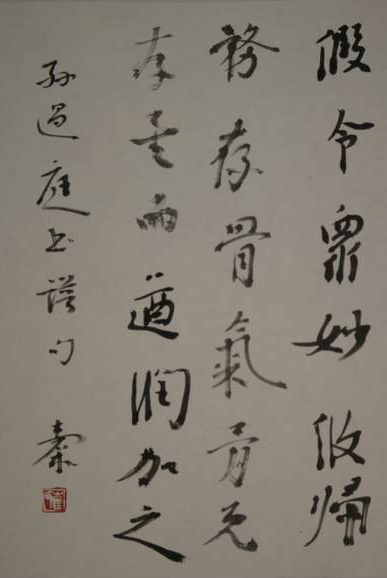 假令眾妙攸歸
務存骨氣骨既
存矣而遒潤加之
孫過庭书譜句